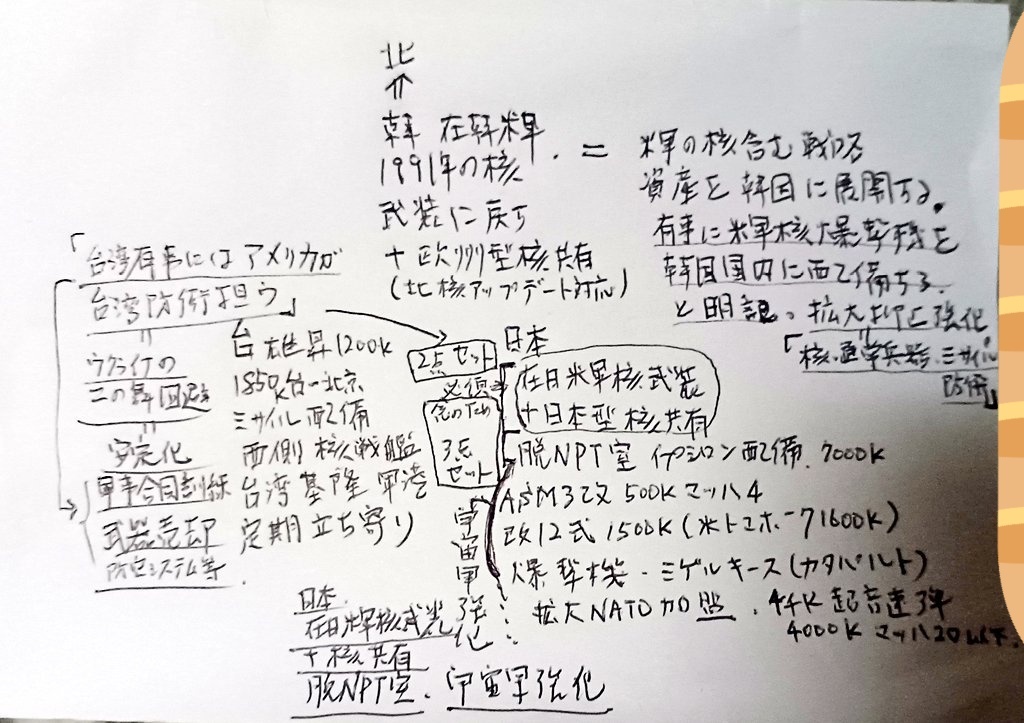 北
⇑
韓 在韓米軍
1991年の核
武装に戻す
+欧州型核共有
(北核アップデート対応)
=
米軍の核含む戦略
資産を韓国に展開する。
有事に米軍核爆撃機を
韓国国内に配備する。
と明記。拡大抑止強化
=
「核・通常兵器・ミサイル
防衛」
「台湾有事にはアメリカが
台湾防衛担う」
=
ウクライナの
二の舞回避
=
安定化
軍事合同訓練
武器売却
防空システム等
台 雄昇1200k
1850k台→北京
ミサイル配備
西側核戦艦
台湾基隆軍港
定期立ち寄り
日本
2点セット
必須
在日米軍核武装
+日本型核共有
念のため
3点
セット
脱NPT室 イプシロン配備 7000k
ASM3改 500K マッハ4
改12式 1500K(米トマホーク1600K)
爆撃機・ミゲルキース(カタパルト)
拡大NATO加盟・44K超音速弾
4000K マッハ20以下
宇宙軍強化
日本
在日米軍核武装
+核共有
脱NPT室・宇宙軍強化